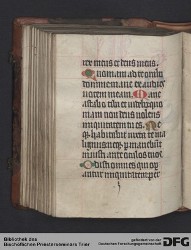 rex meus et deus meus
Quoniam ad te orabo
domine mane exaudies
vocem meam Mane
astabo tibi et videbo quo
niam non deus volens
iniquitatem tu es Ne
que habitabit iuxta te ma
lignus neque permanebunt
iniusti ante oculos tuos
Odisti omnes qui ope
rantur iniquitatem per
Bibliothek des
Bischöflichen Priesterseminars Trier
gefördert von der
Deutschen Forschungsgemeinschaft
DFG